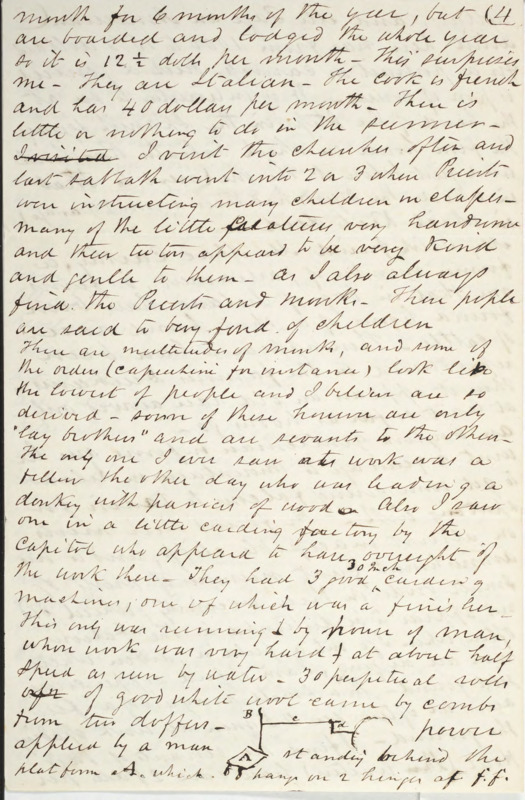 month for 6 months of the year, but (4
are boarded and lodged the whole year
so it is 12 1/2 dolls per month - This surprises
me - They are Italian - The cook is french
and has 40 dollars per month - There is
little or nothing to do in the summer -
I visited I visit the churches often and
last sabbath went into 2 or 3 when Priests
were instructing many children in classes -
many of the little creatures very handsome
and their tutors appeared to be very kind
and gentle to them - as I also always
find the Priests and monks - These people
are said to very fond of children
There are multitudes of monks, and some of
the orders (capuchine for instance) look like
the lowest of people and I believe are so
derived - some of these however are only
"lay brothers" and are servants to the others -
The only one I ever saw at work was a
fellow the other day who was leading a
donkey with paniers of wood - Also I saw
one in a little carding factory by the
Capitol who appeared to have oversight of
the work there - They had 3 good 30 inch carding
machines, one of which was a finisher -
This only was running & by power of man,
whose work was very hard & at about half
speed as run by water - 30 perpetual rolls
of good white wool came by combs
from two doffers - B c d power
applied by a man A standing behind the
platform A. which hangs on 2 hinges at f.f.